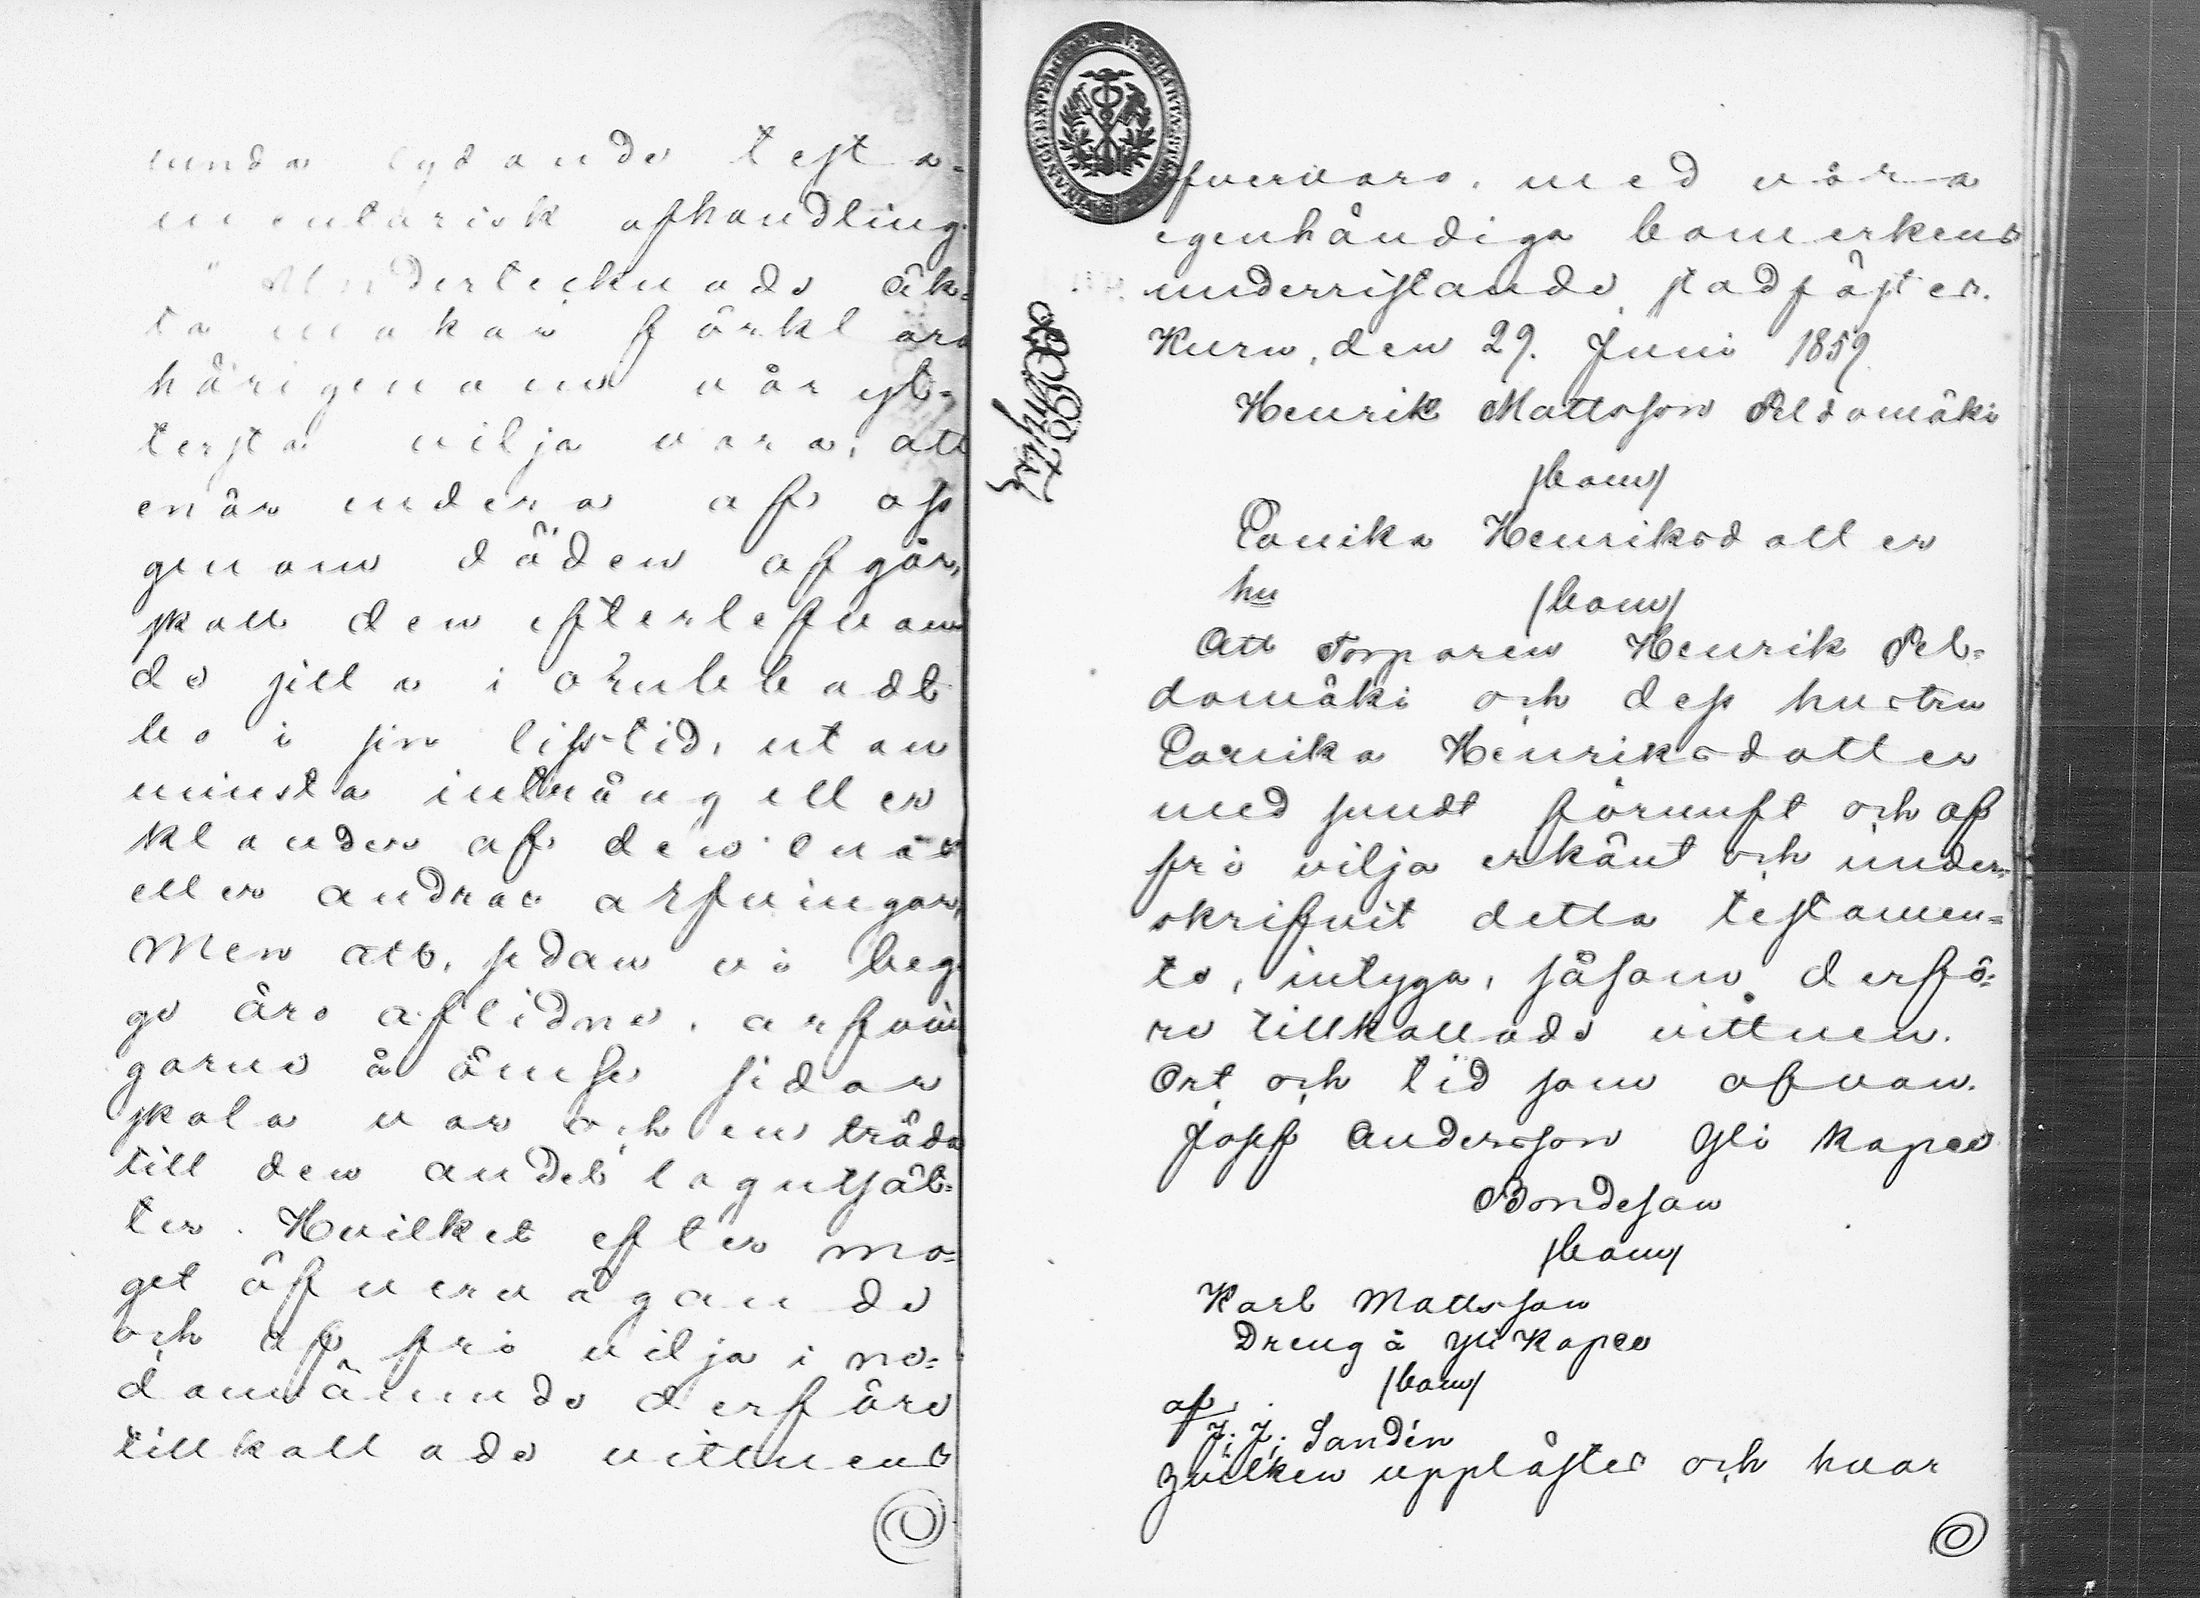 unda lydande testa=
mentarisk afhandling:
"Undertecknade äk=
ta makar förklara
härigenom vår yt=
tersta vilja vara, att
enär endera af oss
genom döden afgår,
skall den efterlefvan
de sitta i orubbadt
bo i sin lifstid, utan
minsta intrång eller
klander af den enas
eller andras arfvingar,
Men att, sedan vi beg
ge äro aflidne, arfvin
garne å ömse sidor
skola var och en träda
till den andel lagen sät=
ter. Hvilket efter mo=
get öfvervägande
och af fri vilja i ne=
dannämnde derföre
tillkallade vittnens
öfvervaro, med våra
egenhändiga bomerkens
underristande, stadfäster.
Kuru, den 29. Juni 1859.
Henrik Mattsson Peldomäki
(bom)
Carika Henriksdotter
hu (bom)
Att Torparen Henrik Pel=
domäki och dess hustru
Carika Henriksdotter
med sundt förnuft och af
fri vilja erkänt och under=
skrifvit detta testamen=
te, intyga, såsom derfö=
re tillkallade vittnen.
Ort och tid som ofvan.
Josef Andersson Yli Kapee
Bondeson
(bom)
Karl Mattsson
Dreng å Yli Kapee
(bom)
af
J. J. Sandén
hvilken upplästes och hvar